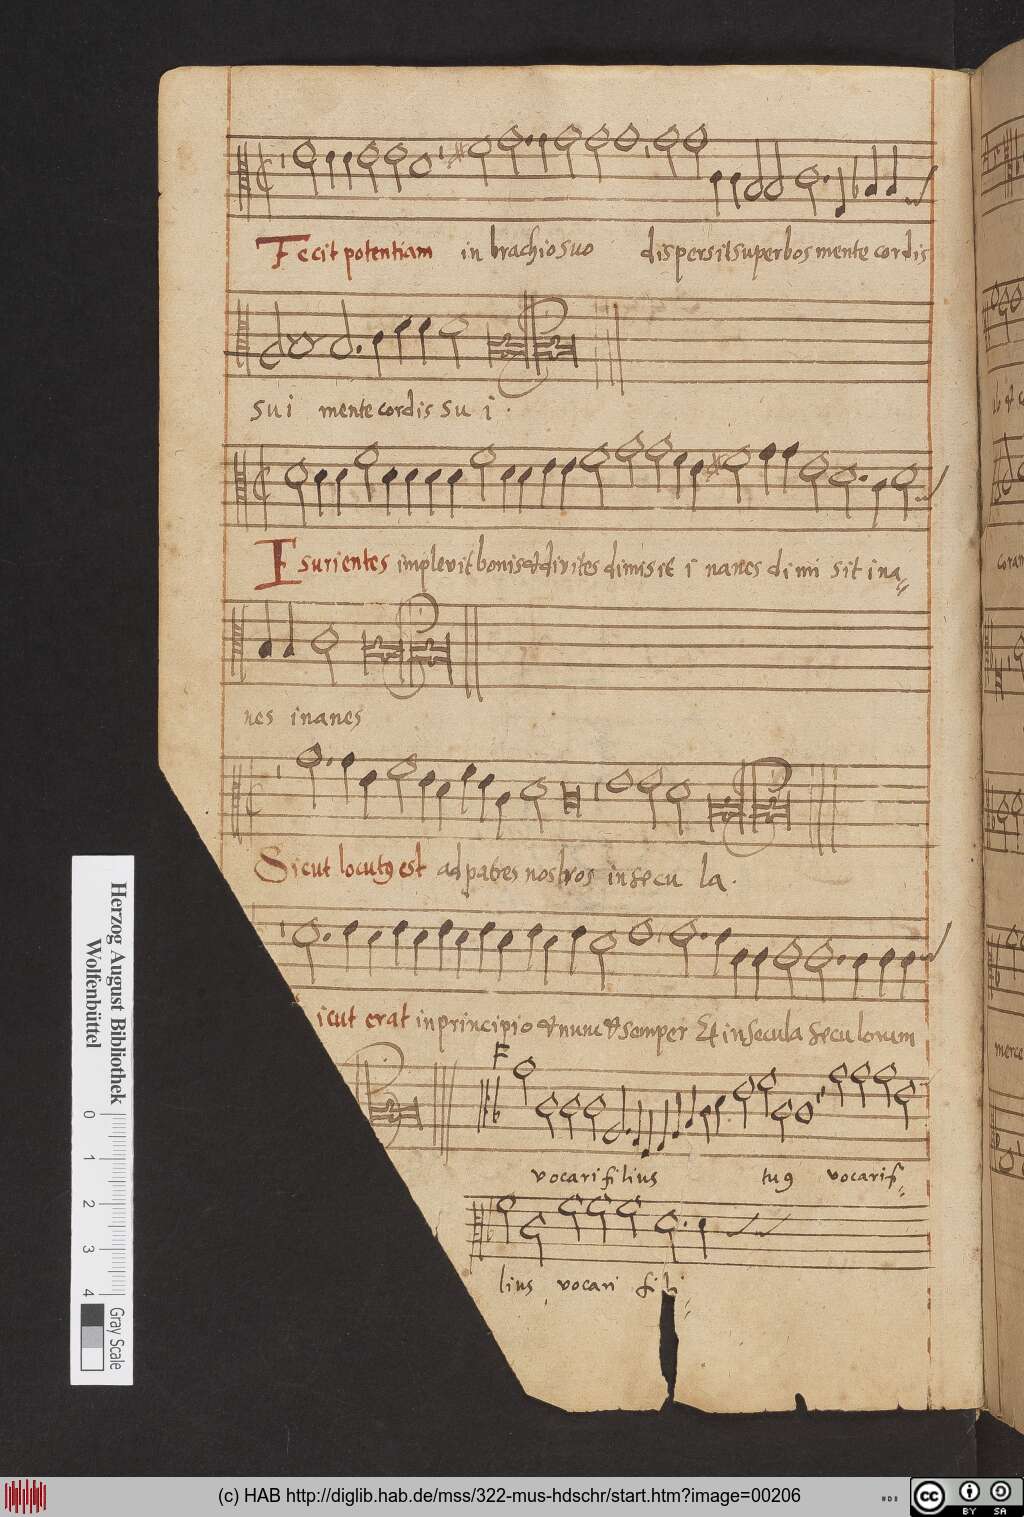 Fecit potentiam in brachio suo dispersit superbos mente cordis
sui mente cordis su i .
Esurientes implevit bonis & divites dimisit i nanes di mi sit ina-
nes inanes
Sicut locutꝰ est ad patres nostros in secu la .
icut erat in principio & nunc & semper Et in secula seculorum
F
vocari filius tuꝰ vocari fi-
lius vocari fi li
Herzog August Bibliothek
Wolfenbüttel
0 1 2 3 4
Gray Scale
coram
merce
(c) HAB http://diglib.hab.de/mss/322-mus-hdschr/start.htm?image=00206
cc BY SA